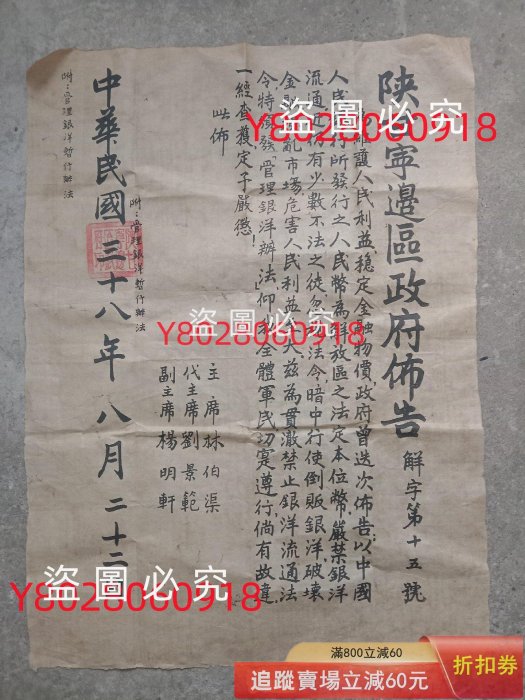 陕寧邊區政府佈告 解字第十五號
維護人民利益,穩定金融物價,政府曾迭次佈告,以中國
人民行所發行之人民幣為解放區之法定本位幣,嚴禁銀洋
流通,近仍有少數不法之徒,勿視法令,暗中行使倒販銀洋,破壞
金融亂市場,危害人民利益至大,茲為貫澈禁止銀洋流通法
令,特頒發「管理銀洋辦法」仰我全體軍民切寔遵行,倘有故違,
一經查獲定予嚴懲!
此佈
主席林伯渠
代主席劉景範
副主席楊明軒
附:管理銀洋暫行辦法
中華民國三十八年八月二十二
附:管理銀洋暫行辦法
盜圖必究
Y8028060918
盜圖必究
Y8028060918
盜圖必究
Y8028060918
滿800立減60
追蹤賣場立減60元
折扣券